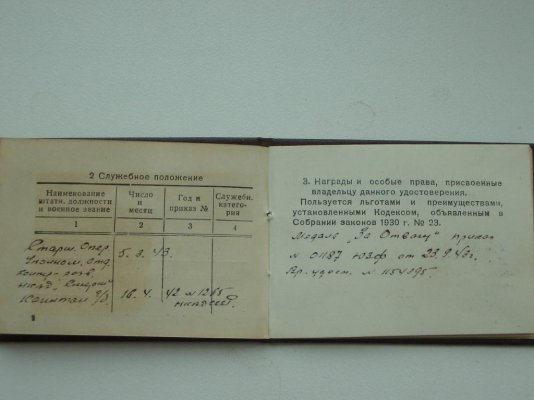 2 Служебное положение
Наименование
штатн. должности
и военное звание
Число
и
месяц
Год и
приказ №
Служебн.
катего-
рия
1
2
3
4
Старш. Опер
5. 3. 43.
Смерш"
Капитан
16. 4.
42 № 1265
3. Награды и особые права, присвоенные
владельцу данного удостоверения.
Пользуется льготами и преимуществами,
установленными Кодексом, объявленным в
Собрании законов 1930 г. № 23.
Медаль „За Отвагу" приказ
№ 0187 ЮЗФ от 23.9.42г.
№ 1154095.